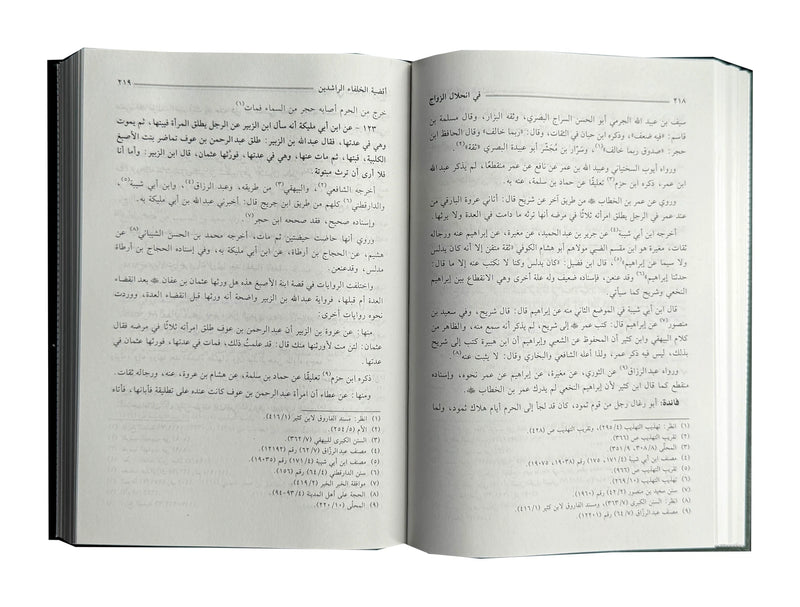 في انحلال الزواج
٢١٨
سيف بن عبيد الله الجرمي أبو الحسن السراج البصري، وثقه البزار، وقال مسلمة بن
قاسم: «فيه ضعف»(١)، وذكره ابن حبان في الثقات، وقال: «ربما خالف» وقال الحافظ ابن
حجر: «صدوق ربما خالف»، وسَرَّار بن مُجَشّر أبو عبيدة البصري «ثقة»(٢).
ورواه أيوب السختياني وعبيد الله بن عمر عن نافع عن عمر منقطعًا، لم يذكر عبد الله
ابن عمر، ذكره ابن حزم(٣) تعليقًا عن حماد بن سلمة، عنه به.
وروي عن عمر بن الخطاب ﷺ من طريق آخر عن شريح قال: أتاني عروة البارقي من
عند عمر في الرجل يطلق امرأته ثلاثًا في مرضه أنها ترثه ما دامت في العدة ولا يرثها.
أخرجه ابن أبي شيبة(٤) عن جرير بن عبد الحميد، عن مغيرة، عن إبراهيم عنه ورجاله
ثقات، مغيرة هو ابن مقسم الضبي مولاهم أبو هشام الكوفي «ثقة متقن إلا أنه كان يدلس
ولا سيما عن إبراهيم»(٥)، قال ابن فضيل: «كان يدلس وكنا لا نكتب عنه إلا ما قال:
حدثنا إبراهيم»(٦) وقد عنعن، فإسناده ضعيف وله علة أخرى وهي الانقطاع بين إبراهيم
النخعي وشريح كما سيأتي.
قال ابن أبي شيبة في الموضع الثاني منه عن إبراهيم قال: قال شريح، وفي سعيد بن
منصور(٧) عن إبراهيم قال: كتب عمر ﷺ إلى شريح، لم يذكر أنه سمع منه، والظاهر من
كلام البيهقي وابن كثير أن المحفوظ عن الشعبي وإبراهيم أن ابن هبيرة كتب إلى شريح
بذلك، ليس فيه ذكر عمر، ولذا أعله الشافعي والبخاري وقال: لا يثبت عنه(٨).
ورواه عبد الرزاق(٩) عن الثوري، عن مغيرة، عن إبراهيم عن عمر نحوه، وإسناده
منقطع كما قال ابن كثير لأن إبراهيم النخعي لم يدرك عمر بن الخطاب ﷺ.
فائدة: أبو رغال رجل من قوم ثمود، كان قد لجأ إلى الحرم أيام هلاك ثمود، ولما
(١) انظر: تهذيب التهذيب (٢٩٥/٤)، وتقريب التهذيب ص (٤٢٨).
(٢) تقريب التهذيب ص (٣٦٦).
(٣) المحلى (٣٠٨/٨، ٣٥١/٩).
(٤) مصنف ابن أبي شيبة (١٧١/٤، ١٧٥) رقم (١٩٠٣٨، ١٩٠٧٥).
(٥) تقريب التهذيب ص (٩٦٦).
(٦) تهذيب التهذيب (٢٦٩/١٠).
(٧) سنن سعيد بن منصور (٤٢/٢) رقم (١٩٦٠).
(٨) انظر: السنن الكبرى للبيهقي (٣٦٣/٧)، ومسند الفاروق لابن كثير (٤١٦/١).
(٩) مصنف عبد الرزّاق (٦٤/٧) رقم (١٢٢٠١).
أقضية الخلفاء الراشدين
٢١٩
خرج من الحرم أصابه حجر من السماء فمات(١).
١٢٣ - عن ابن أبي مليكة أنه سأل ابن الزبير عن الرجل يطلق المرأة فيبتها، ثم يموت
وهي في عدتها، فقال عبد الله بن الزبير: طلق عبد الرحمن بن عوف تماضر بنت الأصبغ
الكلبية، فبتها، ثم مات عنها، وهي في عدتها، فورّثها عثمان، قال ابن الزبير: وأما أنا
فلا أرى أن ترث مبتوتة.
أخرجه الشافعي(٢)، والبيهقي(٣) من طريقه، وعبد الرزاق(٤)، وابن أبي شيبة(٥)،
والدارقطني(٦) كلهم من طريق ابن جريج قال: أخبرني عبد الله بن أبي مليكة به.
وإسناده صحيح، فقد صححه ابن حجر(٧).
وروي أنها حاضت حيضتين ثم مات، أخرجه محمد بن الحسن الشيباني(٨) عن
هشيم، عن الحجاج بن أرطاة، عن ابن أبي مليكة به، وفي إسناده الحجاج بن أرطاة
مدلس، وقد عنعن.
واختلفت الروايات في قصة ابنة الأصبغ هذه هل ورثها عثمان بن عفان ﷺ بعد انقضاء
العدة أم قبلها، فرواية عبد الله بن الزبير واضحة أنه ورثها قبل انقضاء العدة، ووردت
نحوه روايات أخرى:
منها: عن عروة بن الزبير أن عبد الرحمن بن عوف طلق امرأته ثلاثًا في مرضه فقال
عثمان: لئن مت لأورثنها منك قال: قد علمتُ ذلك، فمات في عدتها، فورثها عثمان في
عدتها.
ذكره ابن حزم(٩) تعليقًا عن حماد بن سلمة، عن هشام بن عروة، عنه، ورجاله ثقات.
ومنها: عن عطاء أن امرأة عبد الرحمن بن عوف كانت عنده على تطليقة فأبانها، فأتاه
(١) انظر: مسند الفاروق لابن كثير (٤١٦/١).
(٢) الأم (٢٥٤/٥).
(٣) السنن الكبرى للبيهقي (٣٦٢/٧).
(٤) مصنف عبد الرزاق (٦٢/٧) رقم (١٢١٩٢).
(٥) مصنف ابن أبي شيبة (١٧١/٤) رقم (١٩٠٣٥).
(٦) سنن الدارقطني (٦٤/٤) رقم (١٥٦).
(٧) موافقة الخبر الخبر (٤١٩/٢).
(٨) الحجة على أهل المدينة (٩٣/٤-٩٤).
(٩) المحلّى (٢٢٠/١٠).